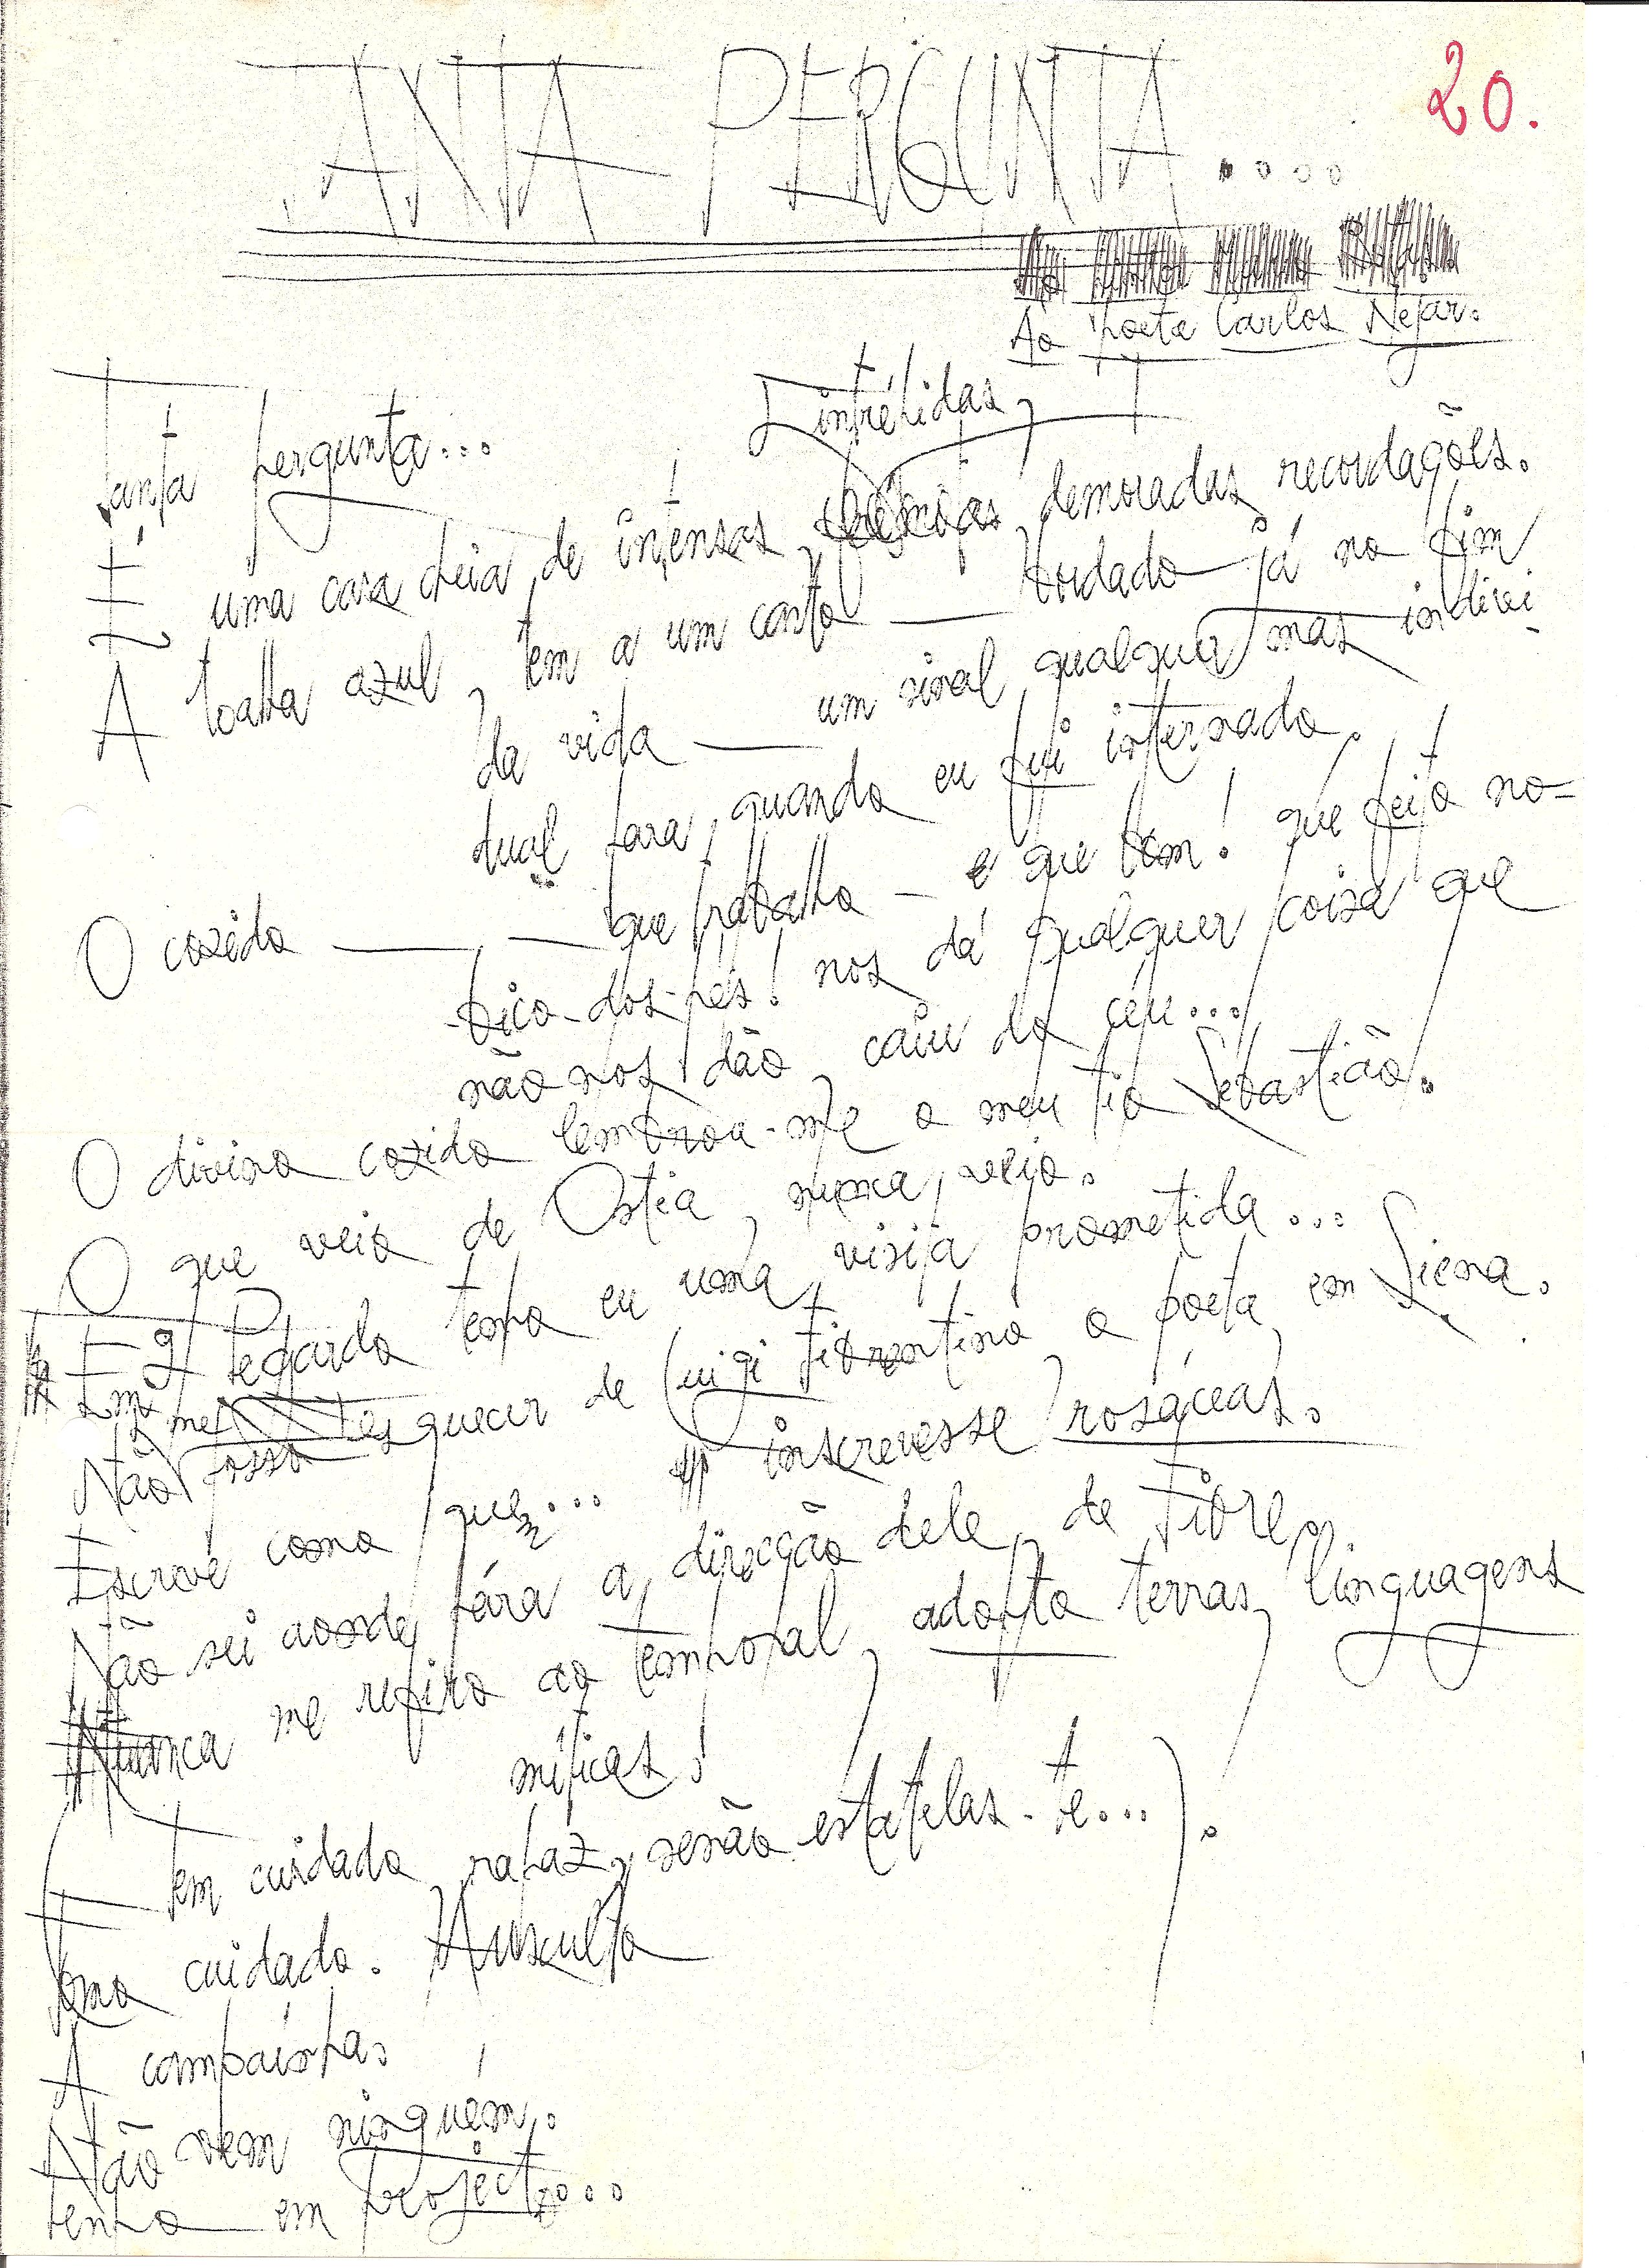 TANTA PERGUNTA....
20.
Ao poeta Carlos Nejar.
Tanta pergunta...
intrépidas,
É uma casa cheia, de intensas, demoradas recordações.
A toalha azul, tem a um canto — bordado já no fim
da vida — um sinal qualquer, mas indivi-
dual para, quando eu fui internado.
O cozido — — que trabalho — e que bem! que feijão no-
bico-dos-pés! nos dá qualquer coisa que
não nos dão, caiu do céu...
O divino cozido lembrou-me o meu tio Sebastião.
O que veio de Ostia, nunca, veio.
Em Pegarda tenho eu uma visita prometida...
Não me posso esquecer de Luigi Fiorentino o poeta em Siena.
Escrevé como quem... inscrevesse rosáceas.
Não sei aonde pára a direcção dele, de Fiore,
Nunca me refiro ao temporal, adopto terras, linguagens
míticas!
(— Tem cuidado, rapaz, senão estatelas-te...).
Toma cuidado. Ausculta
A campaínha.
Não vem ninguém.
tenho em projecto...